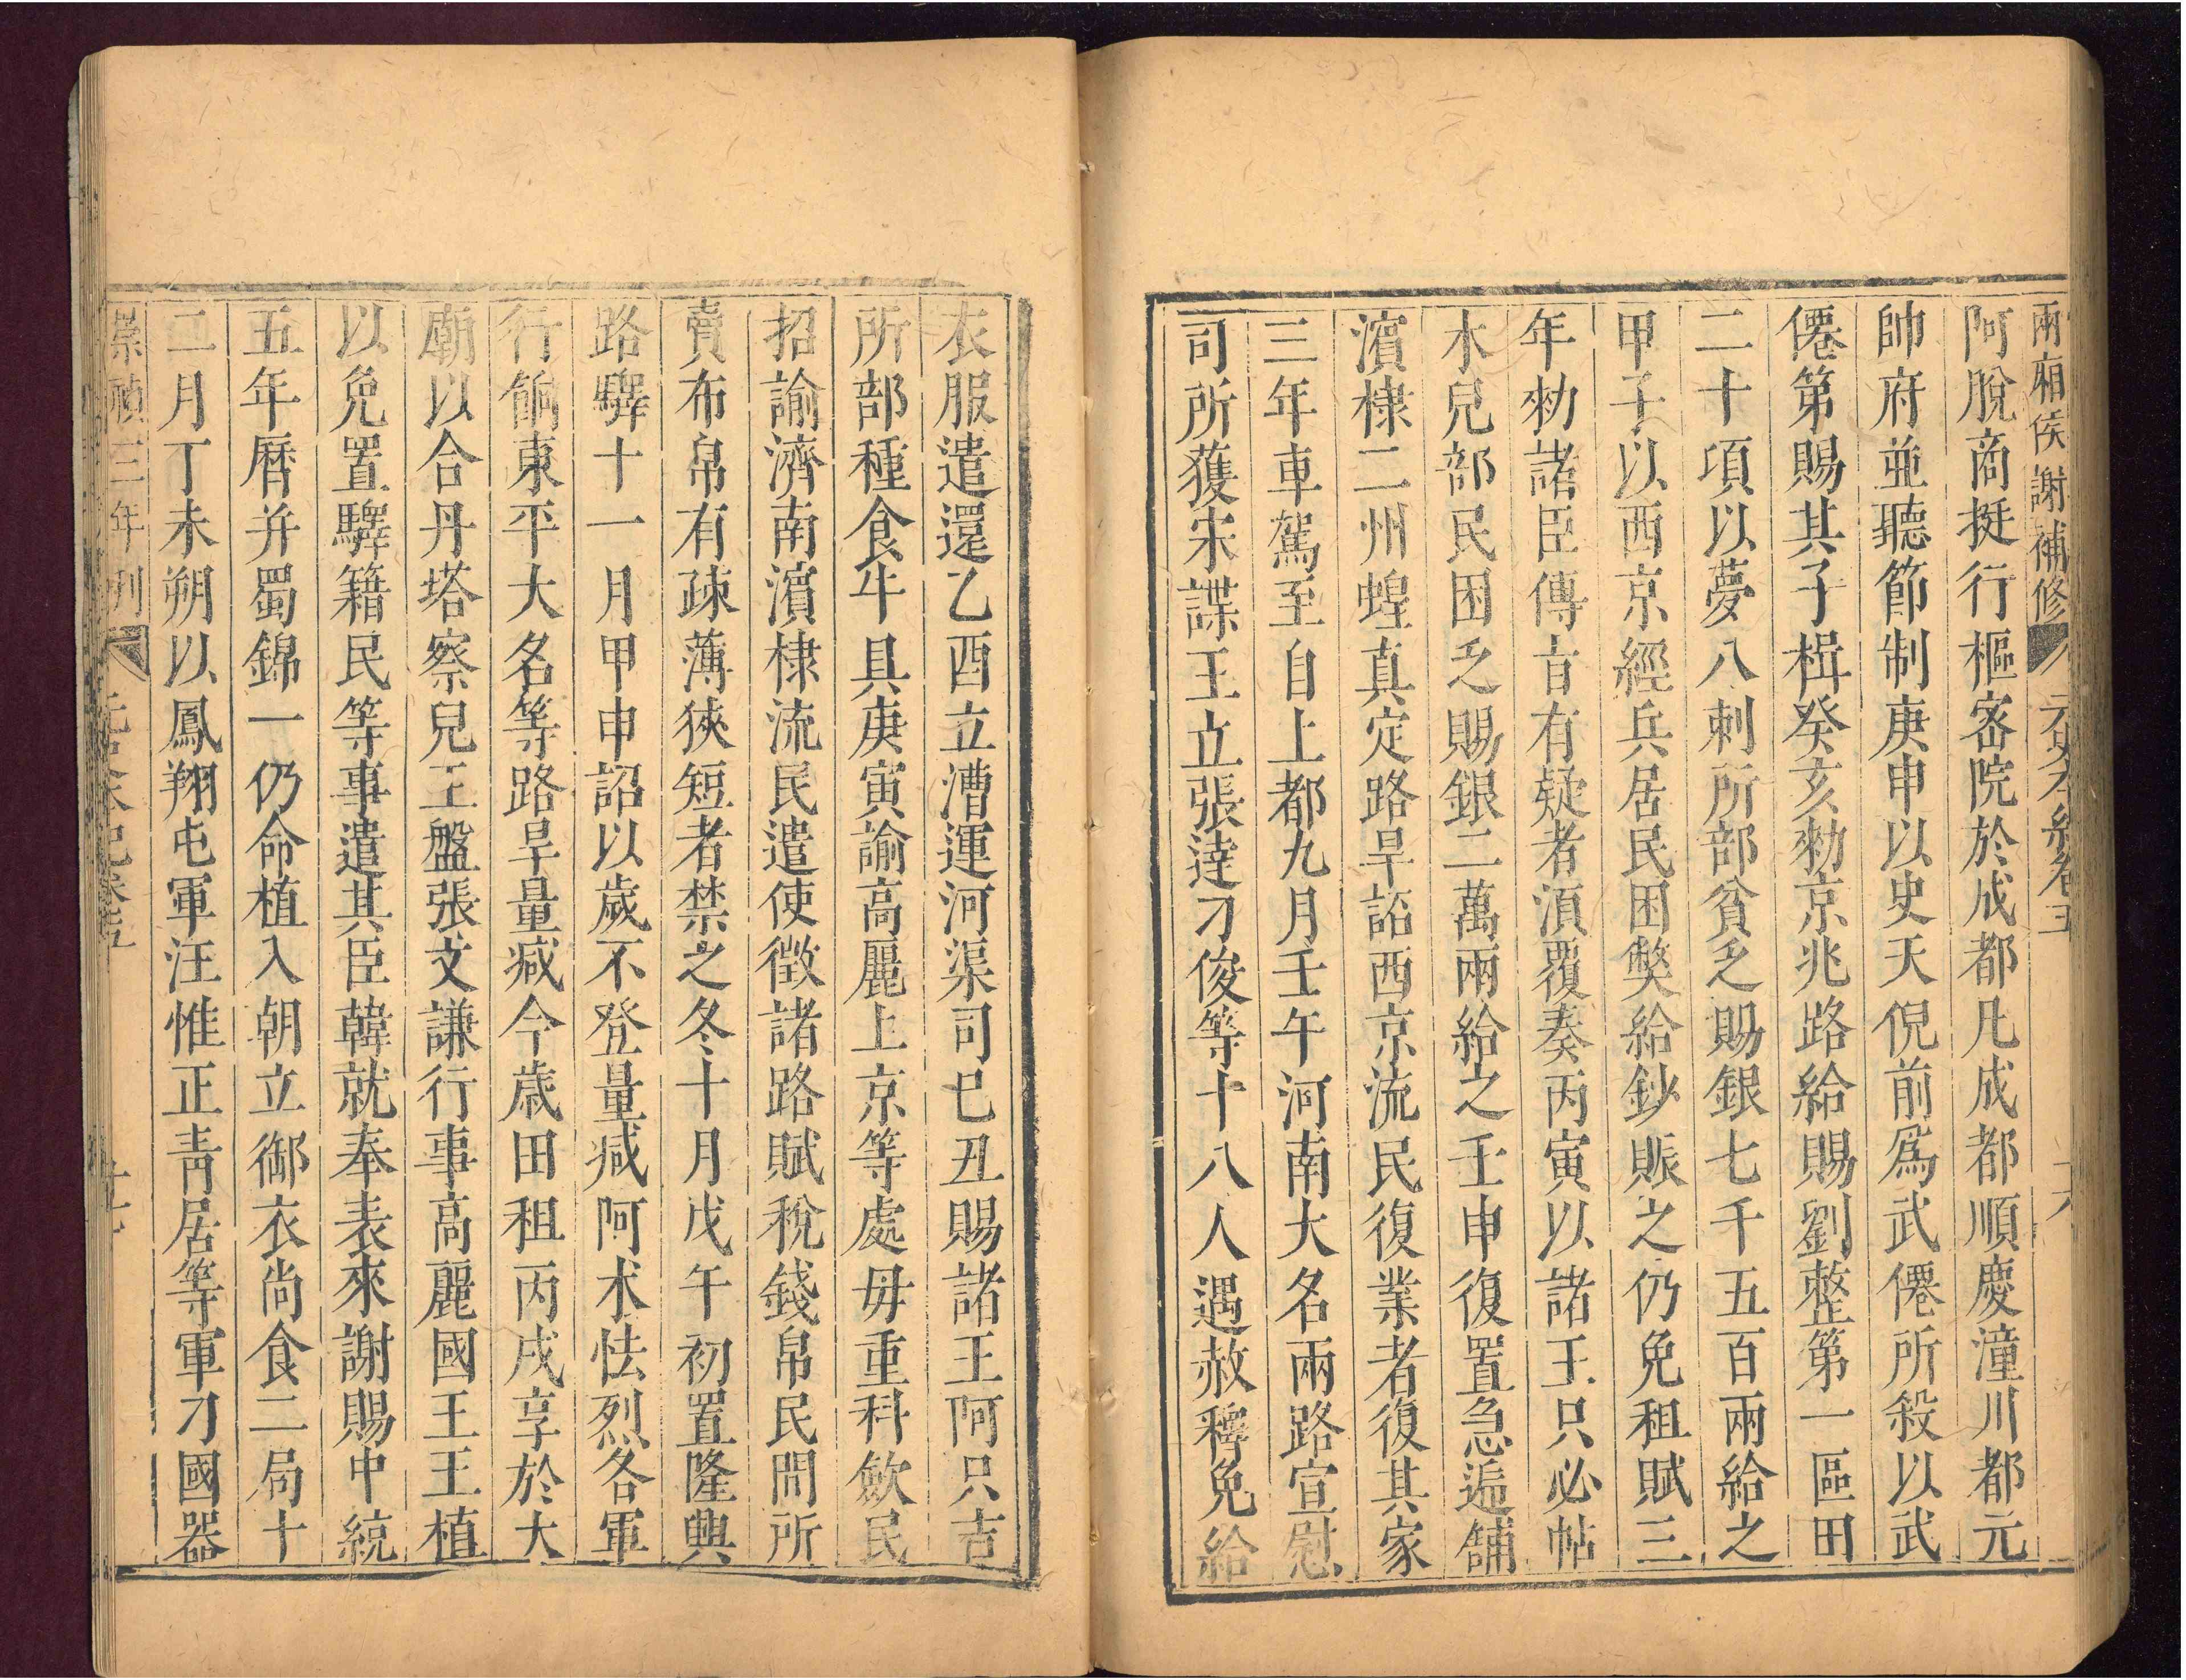 兩廂侯謝補修 元史本紀卷五 十六
阿脫商挺行樞密院於成都凡成都順慶潼川都元
帥府並聽節制庚申以史天倪前爲武僊所殺以武
僊第賜其子楫癸亥勑京兆路給賜劉整第一區田
二十項以夢八剌所部貧乏賜銀七千五百兩給之
甲子以西京經兵居民困弊給鈔賑之仍免租賦三
年勑諸臣傳旨有疑者湏覆奏丙寅以諸王只必帖
木兒部民困乏賜銀二萬兩給之壬申復置急遞舖
濱棣二州蝗真定路旱詔西京流民復業者復其家
三年車駕至自上都九月壬午河南大名兩路宣慰
司所獲宋諜王立張達刁俊等十八人遇赦釋免給
衣服遣還乙酉立漕運河渠司巳丑賜諸王阿只吉
所部種食牛具庚寅諭高麗上京等處毋重科歛民
招諭濟南濱棣流民遣使徵諸路賦稅錢帛民間所
賣布帛有疎薄狹短者禁之冬十月戊午初置隆興
路驛十一月甲申詔以歲不登量减阿术怯烈各軍
行餉東平大名等路旱量减今歲田租丙戌享於大
廟以合丹塔察兒王盤張文謙行事高麗國王王植
以免置驛籍民等事遣其臣韓就奉表來謝賜中統
五年曆并蜀錦一仍命植入朝立御衣尚食二局十
二月丁未朔以鳳翔屯軍汪惟正青居等軍刁國器
崇禎三年刊 元史本紀卷五 十七